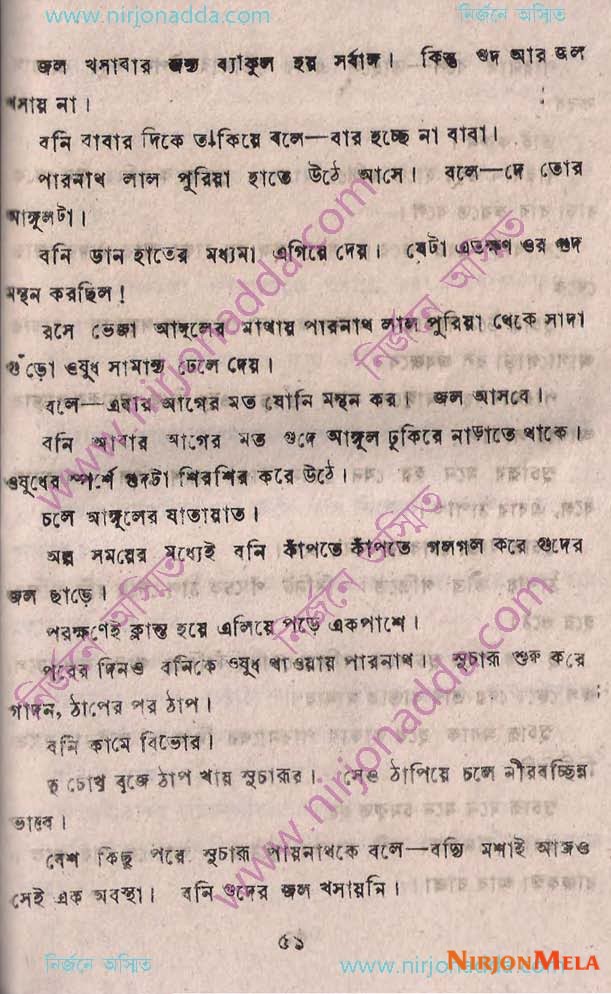 www.nirjonadda.com নির্জনে অস্মিত
জল খসাবার জন্য ব্যাকুল হয় সর্বাঙ্গ। কিন্তু গুদ আর জল
খসায় না।
বনি বাবার দিকে তাকিয়ে বলে—বার হচ্ছে না বাবা।
পারনাথ লাল পুরিয়া হাতে উঠে আসে। বলে—দে তোর
আঙ্গুলটা।
বনি ডান হাতের মধ্যমা এগিয়ে দেয়। যেটা এতক্ষণ ওর গুদ
মন্থন করছিল!
রসে ভেজা আঙ্গুলের মাথায় পারনাথ লাল পুরিয়া থেকে সাদা
গুঁড়ো ওষুধ সামান্য ঢেলে দেয়।
বলে—এবার আগের মত যোনি মন্থন কর। জল আসবে।
বনি আবার আগের মত গুদে আঙ্গুল ঢুকিয়ে নাড়াতে থাকে।
ওষুধের স্পর্শে গুদটা শিরশির করে উঠে।
চলে আঙ্গুলের যাতায়াত।
অল্প সময়ের মধ্যেই বনি কাঁপতে কাঁপতে গলগল করে গুদের
জল ছাড়ে।
পরক্ষণেই ক্লান্ত হয়ে এলিয়ে পড়ে একপাশে।
পরের দিনও বনিকে ওষুধ খাওয়ায় পারনাথ। সুচারু শুরু করে
গাদন, ঠাপের পর ঠাপ।
বনি কামে বিভোর।
দু চোখ বুজে ঠাপ খায় সুচারুর। সেও ঠাপিয়ে চলে নীরবচ্ছিন্ন
ভাবে।
বেশ কিছু পরে সুচারু পারনাথকে বলে—বদ্যি মশাই আজও
সেই এক অবস্থা। বনি গুদের জল খসায়নি।
৫১
নির্জনে অস্মিত www.nirjonadda.com নির্জনে অস্মিত
NIRJONMELA
www.nirjonadda.com নির্জনে অস্মিত
www.nirjonadda.com নির্জনে অস্মিত
নির্জনে অস্মিত